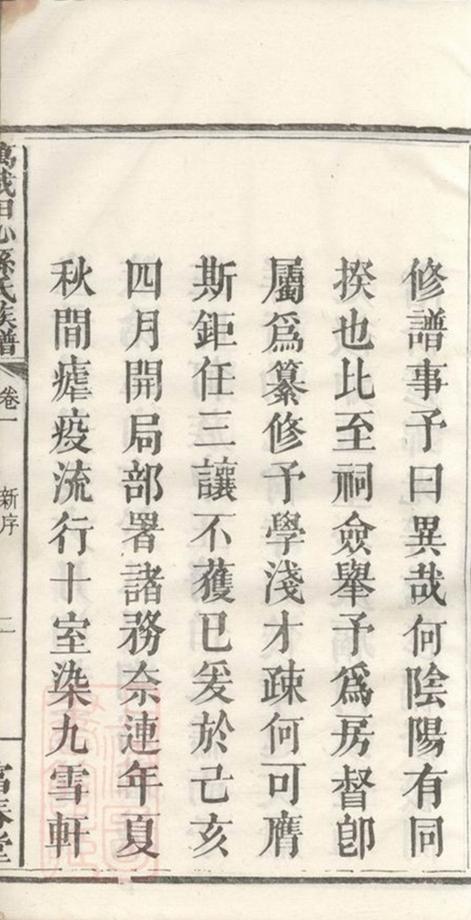 修譜事予曰異哉何陰陽有同
揆也比至祠僉舉予爲房督卽
屬爲纂修予學淺才疎何可膺
斯鉅任三讓不獲已爰於己亥
四月開局部署諸務奈連年夏
秋間瘧疫流行十室染九雪軒
萬載田心孫氏族譜
卷一
新序
二
富春堂